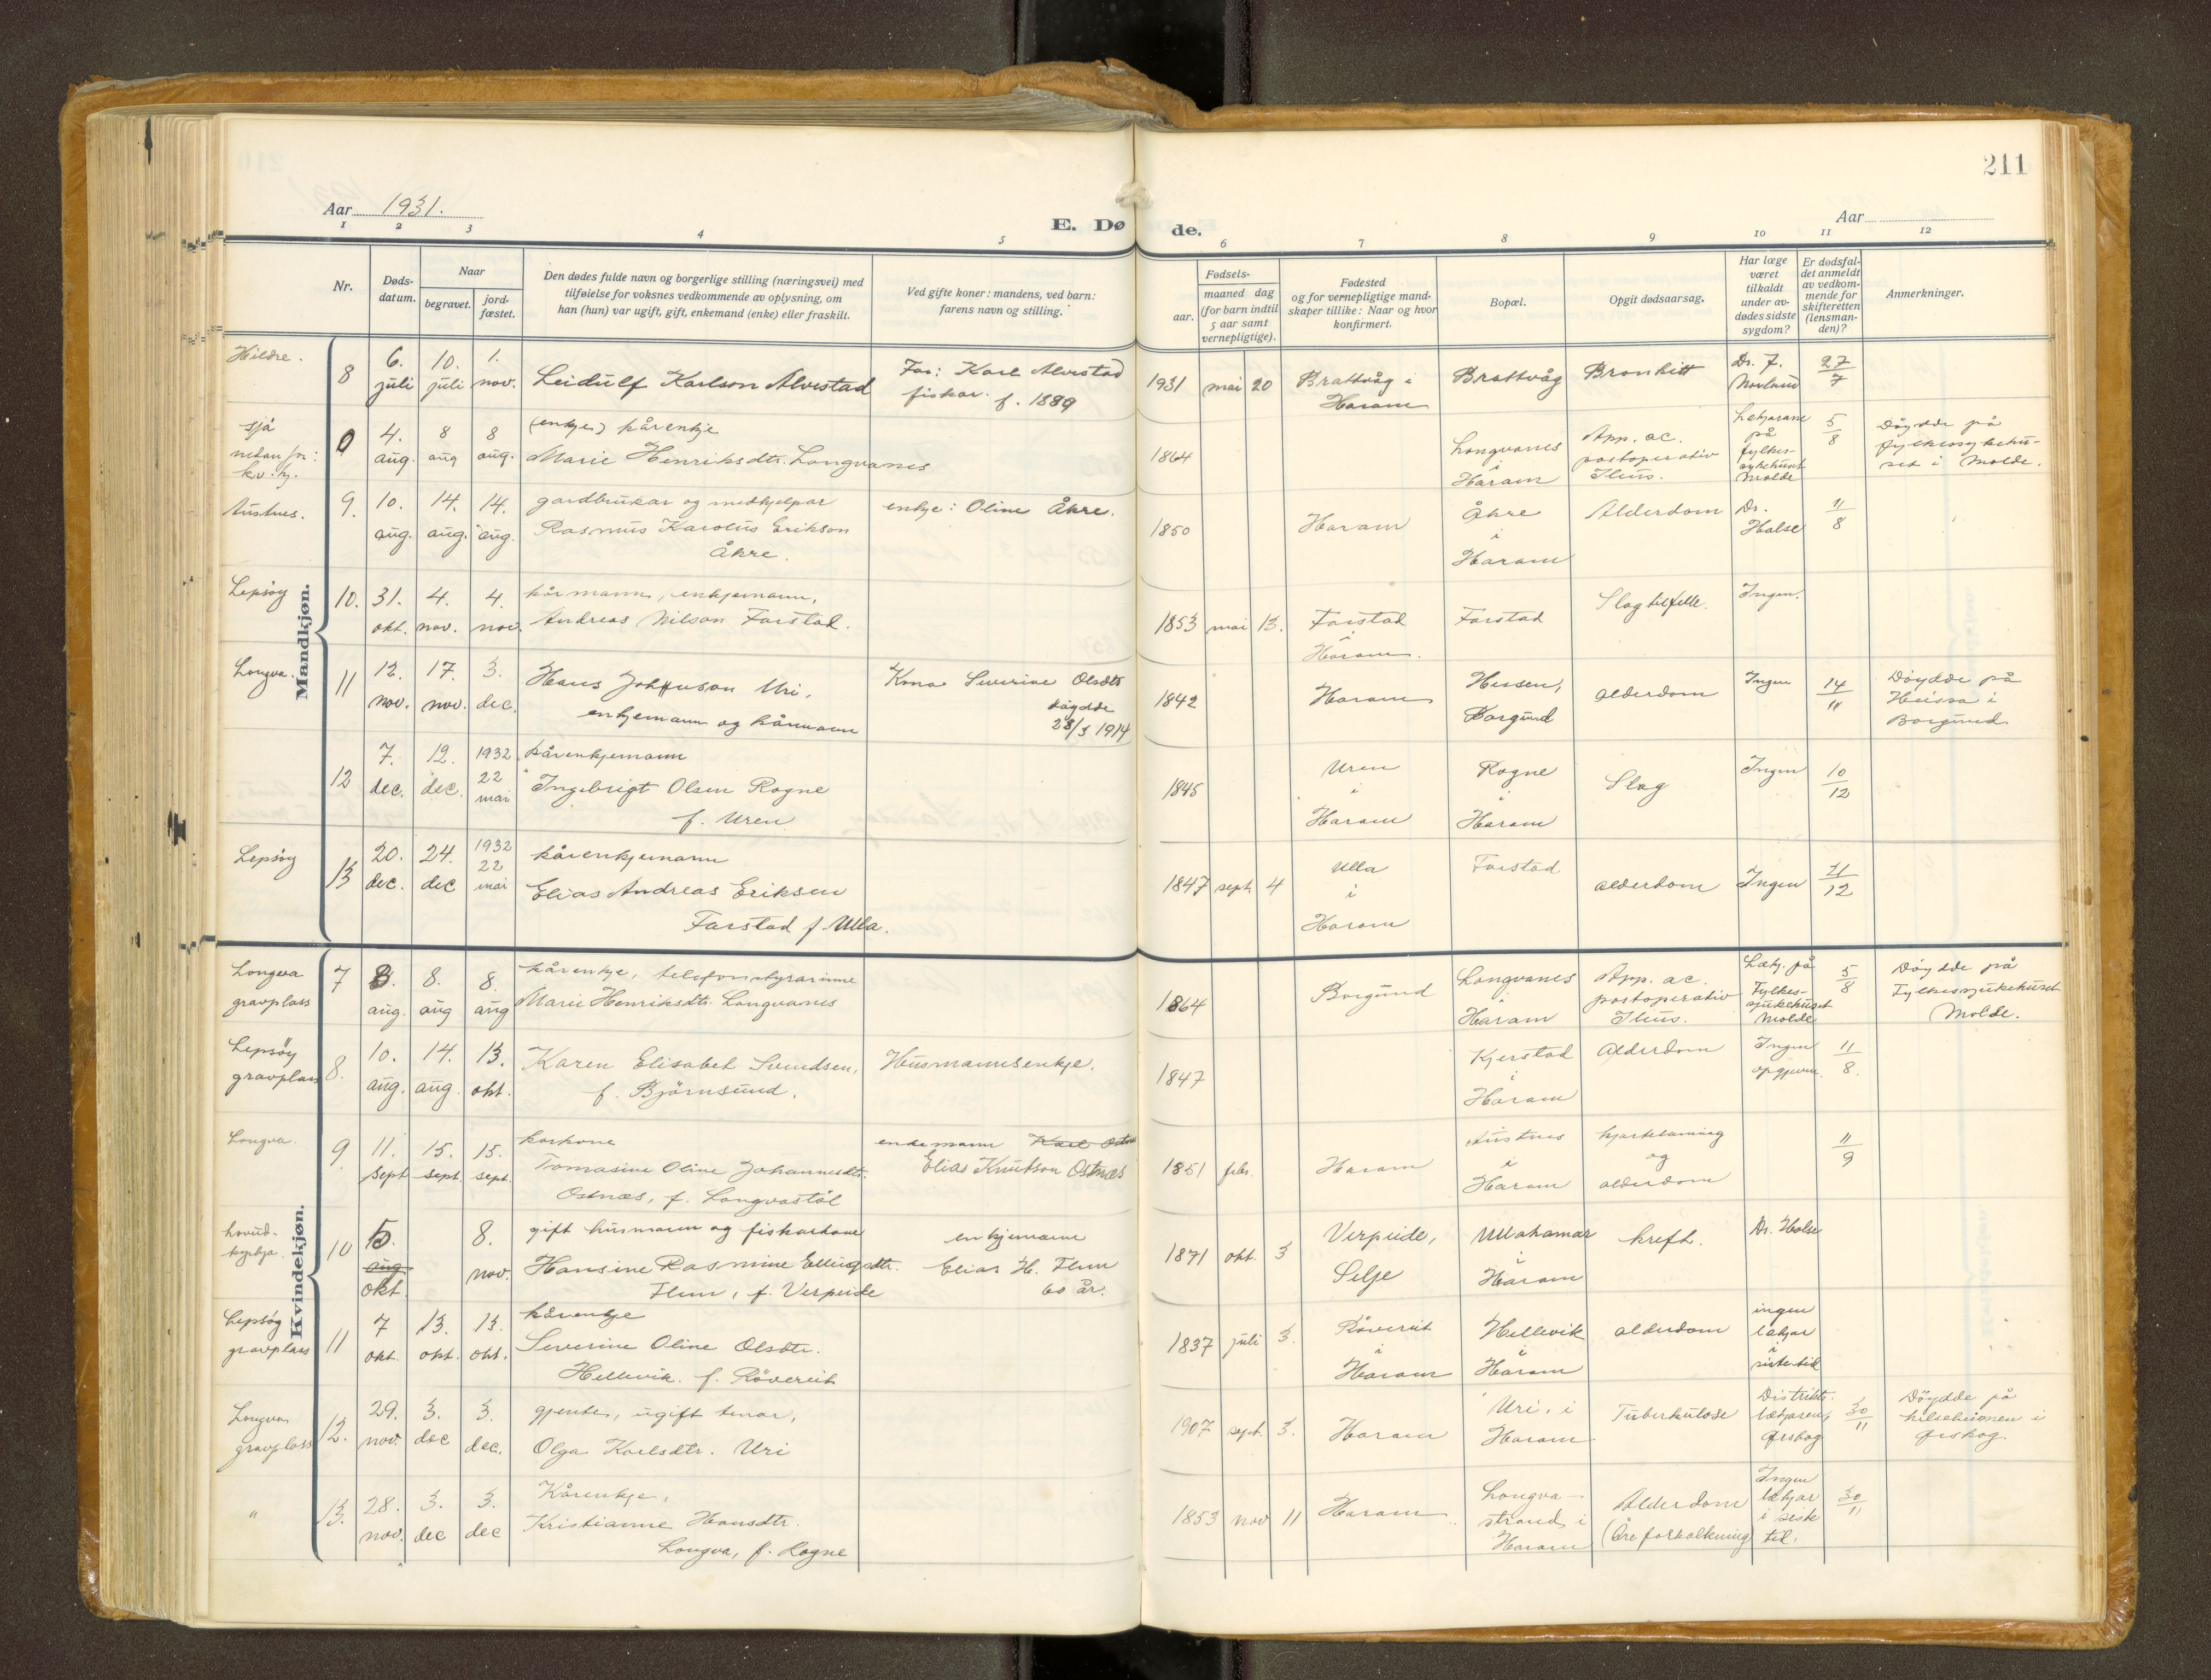 211
Aar 1931.
E. Dø
de.
Aar
1 2 3 4 5 6 7 8 9 10 11 12
Nr.
Døds-
datum.
Naar
begravet.
jord-
fæstet.
Den dødes fulde navn og borgerlige stilling (næringsvei) med
tilføielse for voksnes vedkommende av oplysning, om
han (hun) var ugift, gift, enkemand (enke) eller fraskilt.
Ved gifte koner: mandens, ved barn:
farens navn og stilling.
Fødsels-
aar.
maaned dag
(for barn indtil
5 aar samt
vernepligtige).
Fødested
og for vernepligtige mand-
skaper tillike: Naar og hvor
konfirmert.
Bopæl.
Opgit dødsaarsag.
Har læge
været
tilkaldt
under av-
dødes sidste
sygdom?
Er dødsfal-
det anmeldt
av vedkom-
mende for
skifteretten
(lensman-
den)?
Anmerkninger.
Mandkjøn.
Hildre.
8
6.
juli
10.
juli
1.
nov.
Leidulf Karlson Alvestad
Far: Karl Alvestad
fiskar. f. 1889
1931 mai 20
Brattvåg i
Haram
Brattvåg
Bronkitt
Dr. J.
Norland
27/7
sjå
nedan for:
kv. kj.
0
4.
aug.
8
aug
8
aug.
(enkje) kårenkje
Marie Henriksdtr. Longvanes
1864
Longvanes
i
Haram
App. ac.
postoperativ
Ileus.
Lækjarane
på
fylkes-
sykehuset
Molde
5/8
Døydde på
fylkessykehu-
set i Molde.
Austnes.
9.
10.
aug.
14.
aug.
14.
aug.
gardbrukar og medhjelpar
Rasmus Karolus Erikson
Åkre.
enkje: Oline Åkre.
1850
Haram
Åkre
i
Haram
Alderdom
Dr.
Halse
11/8
Lepsøy
10.
31.
okt.
4.
nov.
4.
nov.
kårmann, enkjemann,
Andreas Nilson Farstad.
1853 mai 13.
Farstad
i
Haram.
Farstad
Slagtilfelle.
Ingen.
Longva.
11
12.
nov.
17.
nov.
3.
dec.
Hans Johnson Uri,
enkjemann og kårmann
Kona Severine Olsdtr
døydde
28/3 1914
1842
Haram
Hessen,
Borgund
alderdom
Ingen
14/11
Døydde på
Heissa i
Borgund
12
7.
dec.
12.
dec.
1932
22
mai
kårenkjemann
Ingebrigt Olsen Rogne
f. Uren
1845
Uren
i
Haram
Rogne
i
Haram
Slag
Ingen
10/12
Lepsøy
13
20.
dec.
24.
dec
1932
22
mai
kårenkjemann
Elias Andreas Eriksen
Farstad f. Ulla.
1847 sept 4
Ulla
i
Haram
Farstad
alderdom
Ingen
21/12
Kvindekjøn.
Longva
gravplass
7
aug.
8.
aug
8.
aug
kårenkje, telefonstyrarinne
Marie Henriksdtr. Longvanes
1864
Borgund
Longvanes
i
Haram
App. ac.
postoperativ
Ileus.
Lækj. på
Fylkes-
sjukehuset
Molde
5/8
Døydde på
Fylkessjukehuset
Molde.
Lepsøy
gravplass
8.
10.
aug.
14.
aug
13.
okt.
Karen Elisabet Svendsen,
f. Bjørnsund.
Husmannsenkje.
1847
Kjerstad
i
Haram
Alderdom
Ingen
opgjeven.
11/8.
Longva.
9
11.
sept
15.
sept.
15.
sept.
karkone
Tomasine Oline Johannesdtr.
Ostnæs, f. Longvastøl
enkemann Karl Ostn
Elias Knutson Ostnæs
1851 febr.
Haram
Austnes
i
Haram
hjartelaming
og
alderdom
11/9
hovud-
kyrkja.
10
5.
aug
okt
8.
nov.
gift husmann og fiskarkone
Hansine Rasmine Ellingsdtr.
Flem, f. Verpeide
enkjemann
Elias H. Flem
60 år.
1871 okt. 3
Verpeide,
Selje
Ullahamar
i
Haram
kreft.
Dr. Halse
Lepsøy
gravplass
11
7
okt.
13.
okt.
13.
okt.
kårenkje
Severine Oline Olsdtr.
Hellevik. f. Røvereit
1837 juli 3.
Røvereit
i
Haram
Hellevik
i
Haram
alderdom
ingen
lækjar
i
siste tid
Longva
gravplass
12.
29.
nov.
3.
dec
3.
dec.
gjente, ugift tenar,
Olga Karlsdtr. Uri
1907 sept. 3.
Haram
Uri, i
Haram
Tuberkulose
Distrikts-
lækjaren,
Ørskog
30/11
Døydde på
helseheimen i
Ørskog.
"
13.
28.
nov.
3.
dec
3.
dec
Kårenkje,
Kristianne Hansdtr.
Longva, f. Rogne
1853 nov 11
Haram
Longva-
strand, i
Haram
Alderdom
(Åreforkalkning)
Ingen
lækjar
i siste
tid.
30/11